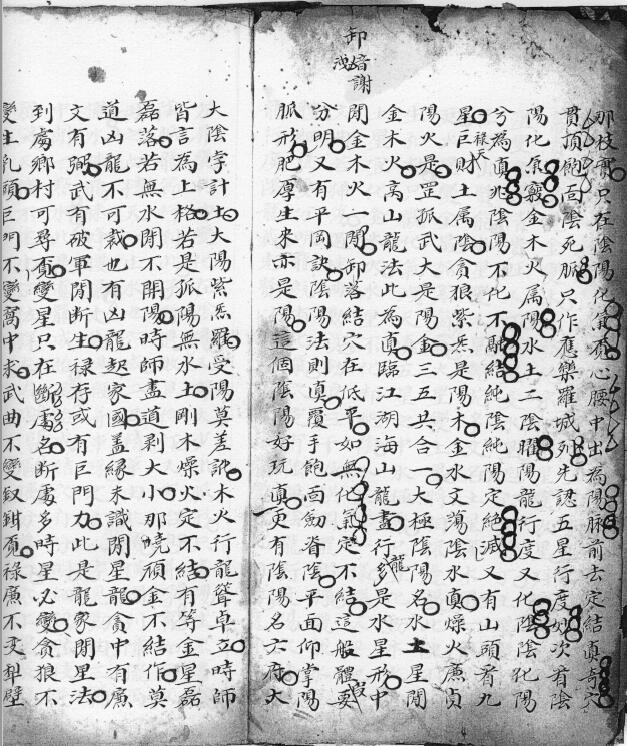 那枝實只在陰陽化氣頂心腰中出為陽脉前去定結真奇穴
貫頂飽面陰死脈只作應樂羅城列先認五星行度妙次看陰
陽化氣竅金木火属陽水土二陰曜陽龍行度又化陰陰化陽
兮為真兆陰陽不化不融結純陰純陽定絕滅又有山頭看九
星巨财土属陰貪狼紫炁是陽木金水文蕩陰水真燥火廉貞
禄天
陽火是罡孤武大是陽金三五共合一大極陰陽名水土星閒
金木火高山龍法此為真歸江湖海山龍盡行多是水星形中
龍
閒金木火一閒卸落結穴在低平如無化氣定不結這般體要
卸
音謝
洩
分明又有平岡訣陰陽法則真覆手飽面劔脊陰平面仰掌陽
脈形肥厚生来亦是陽這個陰陽好玩真更有陰陽名六府大
大陰字計土大陽紫炁羅受陽莫差訛木火行龍聳卓立時師
皆言為上格若是孤陽無水土剛木燥火定不結有等金星磊
磊落若無水閒不開陽時師盡道剥大小那曉頑金不結作莫
道凶龍不可裁也有凶龍起家國蓋緣未識閒星龍貪中有廉
文有弼武有破軍閒斷生禄存或有巨門力此是龍家閒星法
到處鄉村可尋覓變星只在斷處名斷處多時星必變貪狼不
變生乳頭巨門不變窩中求武曲不變釵鉗覓禄廉不变犁壁